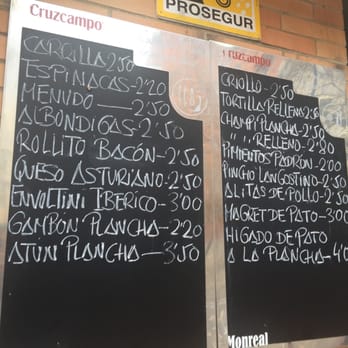 PROSEGUR
Cruzcampo
CARRILLA 2'50
ESPINACAS-2'20
MENUDO — 2'50
ALBONDIGAS-2'50
ROLLITO BACÓN-2'50
QUESO ASTURIANO-2'50
ENVOLTINI IBERICO-3'00
GAMBÓN PLANCHA-2'20
ATÚN PLANCHA-3'50
Cruzcampo
CRIOLLO-2'50
TORTILLA RELLENA 2'50
CHAMPI PLANCHA-2'50
" " RELLENO-2'80
PIMIENTOS PADRÓN-2'00
PINCHO LANGOSTINO-2'50
ALITAS DE POLLO-2'50
MAGRET DE PATO-3'00
HIGADO DE PATO
A LA PLANCHA-4'0
Monreal